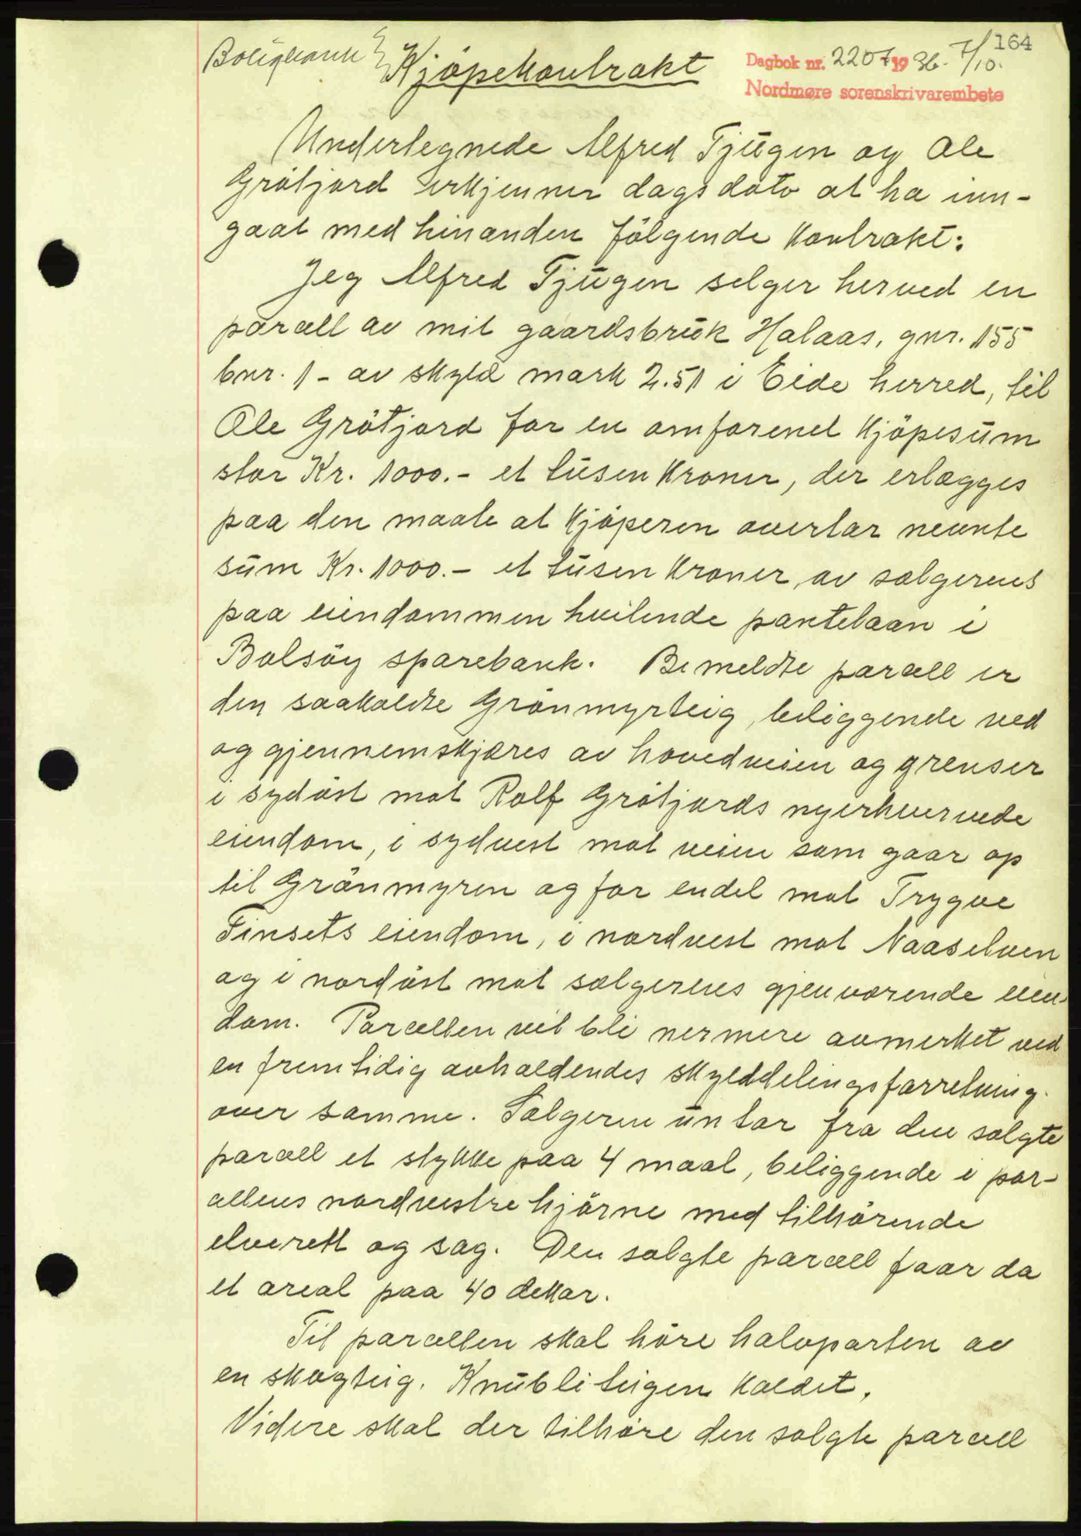 164
Kjöpekontrakt
Dagbok nr. 2207 1936 7/10.
Nordmøre sorenskrivarembete
Underlegnede Alfred Tjugen og Ole
Grötjord erkjenner dags dato at ha inn-
gaat med hinanden følgende kontrakt:
Jeg Alfred Tjugen selger herved en
parcell av mit gaardsbruk Halaas, gnr. 155
bnr. 1 - av skyld mark 2.51 i Eide herred, til
Ole Grötjord for en omforenet kjöpesum
stor Kr. 1000.- et tusen kroner, der erlægges
paa den maate at kjöperen overtar nevnte
sum Kr. 1000.- et tusen kroner, av sælgerens
paa eiendommen hvilende pantelaan i
Bolsöy sparebank. Bemeldte parcell er
den saakaldte Grönmyrteig, beliggende ved
og gjennemskjæres av hovedveien og grenser
i sydöst mot Rolf Grötjords nyerhvervede
eiendom, i sydvest mot veien som gaar op
til Grönmyren og for endel mot Trygve
Finsets eiendom, i nordvest mot Naaselven
og i nordöst mot sælgerens gjenværende eien-
dom. Parcellen vil bli nermere avmerket ved
en fremtidig avholdendes skylddelingsforretning
over samme. Sælgeren untar fra den solgte
parcell et stykke paa 4 maal, beliggende i par-
cellens nordvestre hjörne med tilhörende
elverett og sag. Den solgte parcell faar da
et areal paa 40 dekar.
Til parcellen skal höre halvparten av
en skogteig. Knubliteigen kaldet.
Videre skal der tilhöre den solgte parcell